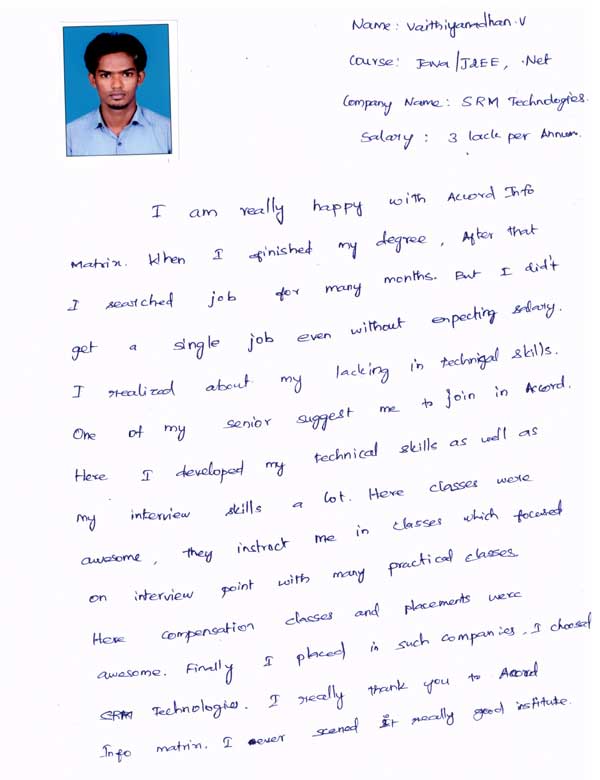 Name: Vaithiyanadhan.V
Course: Java/J2EE, .Net
Company Name: SRM Technologies.
Salary: 3 lack per Annum.
I am really happy with Accord Info
Matrix. When I finished my degree, After that
I searched job for many months. But I didn't
get a single job even without expecting salary.
I realized about my lacking in technigal skills.
One of my senior suggest me to join in Accord.
Here I developed my technical skills as well as
my interview skills a lot. Here classes were
awesome, they instruct me in classes which focused
on interview point with many practical classes
Here compensation classes and placements were
awesome. Finally I placed in such companies. I choosed
SRM Technologies. I really thank you to Accord
Info matrix. I ever scened it really good institute.